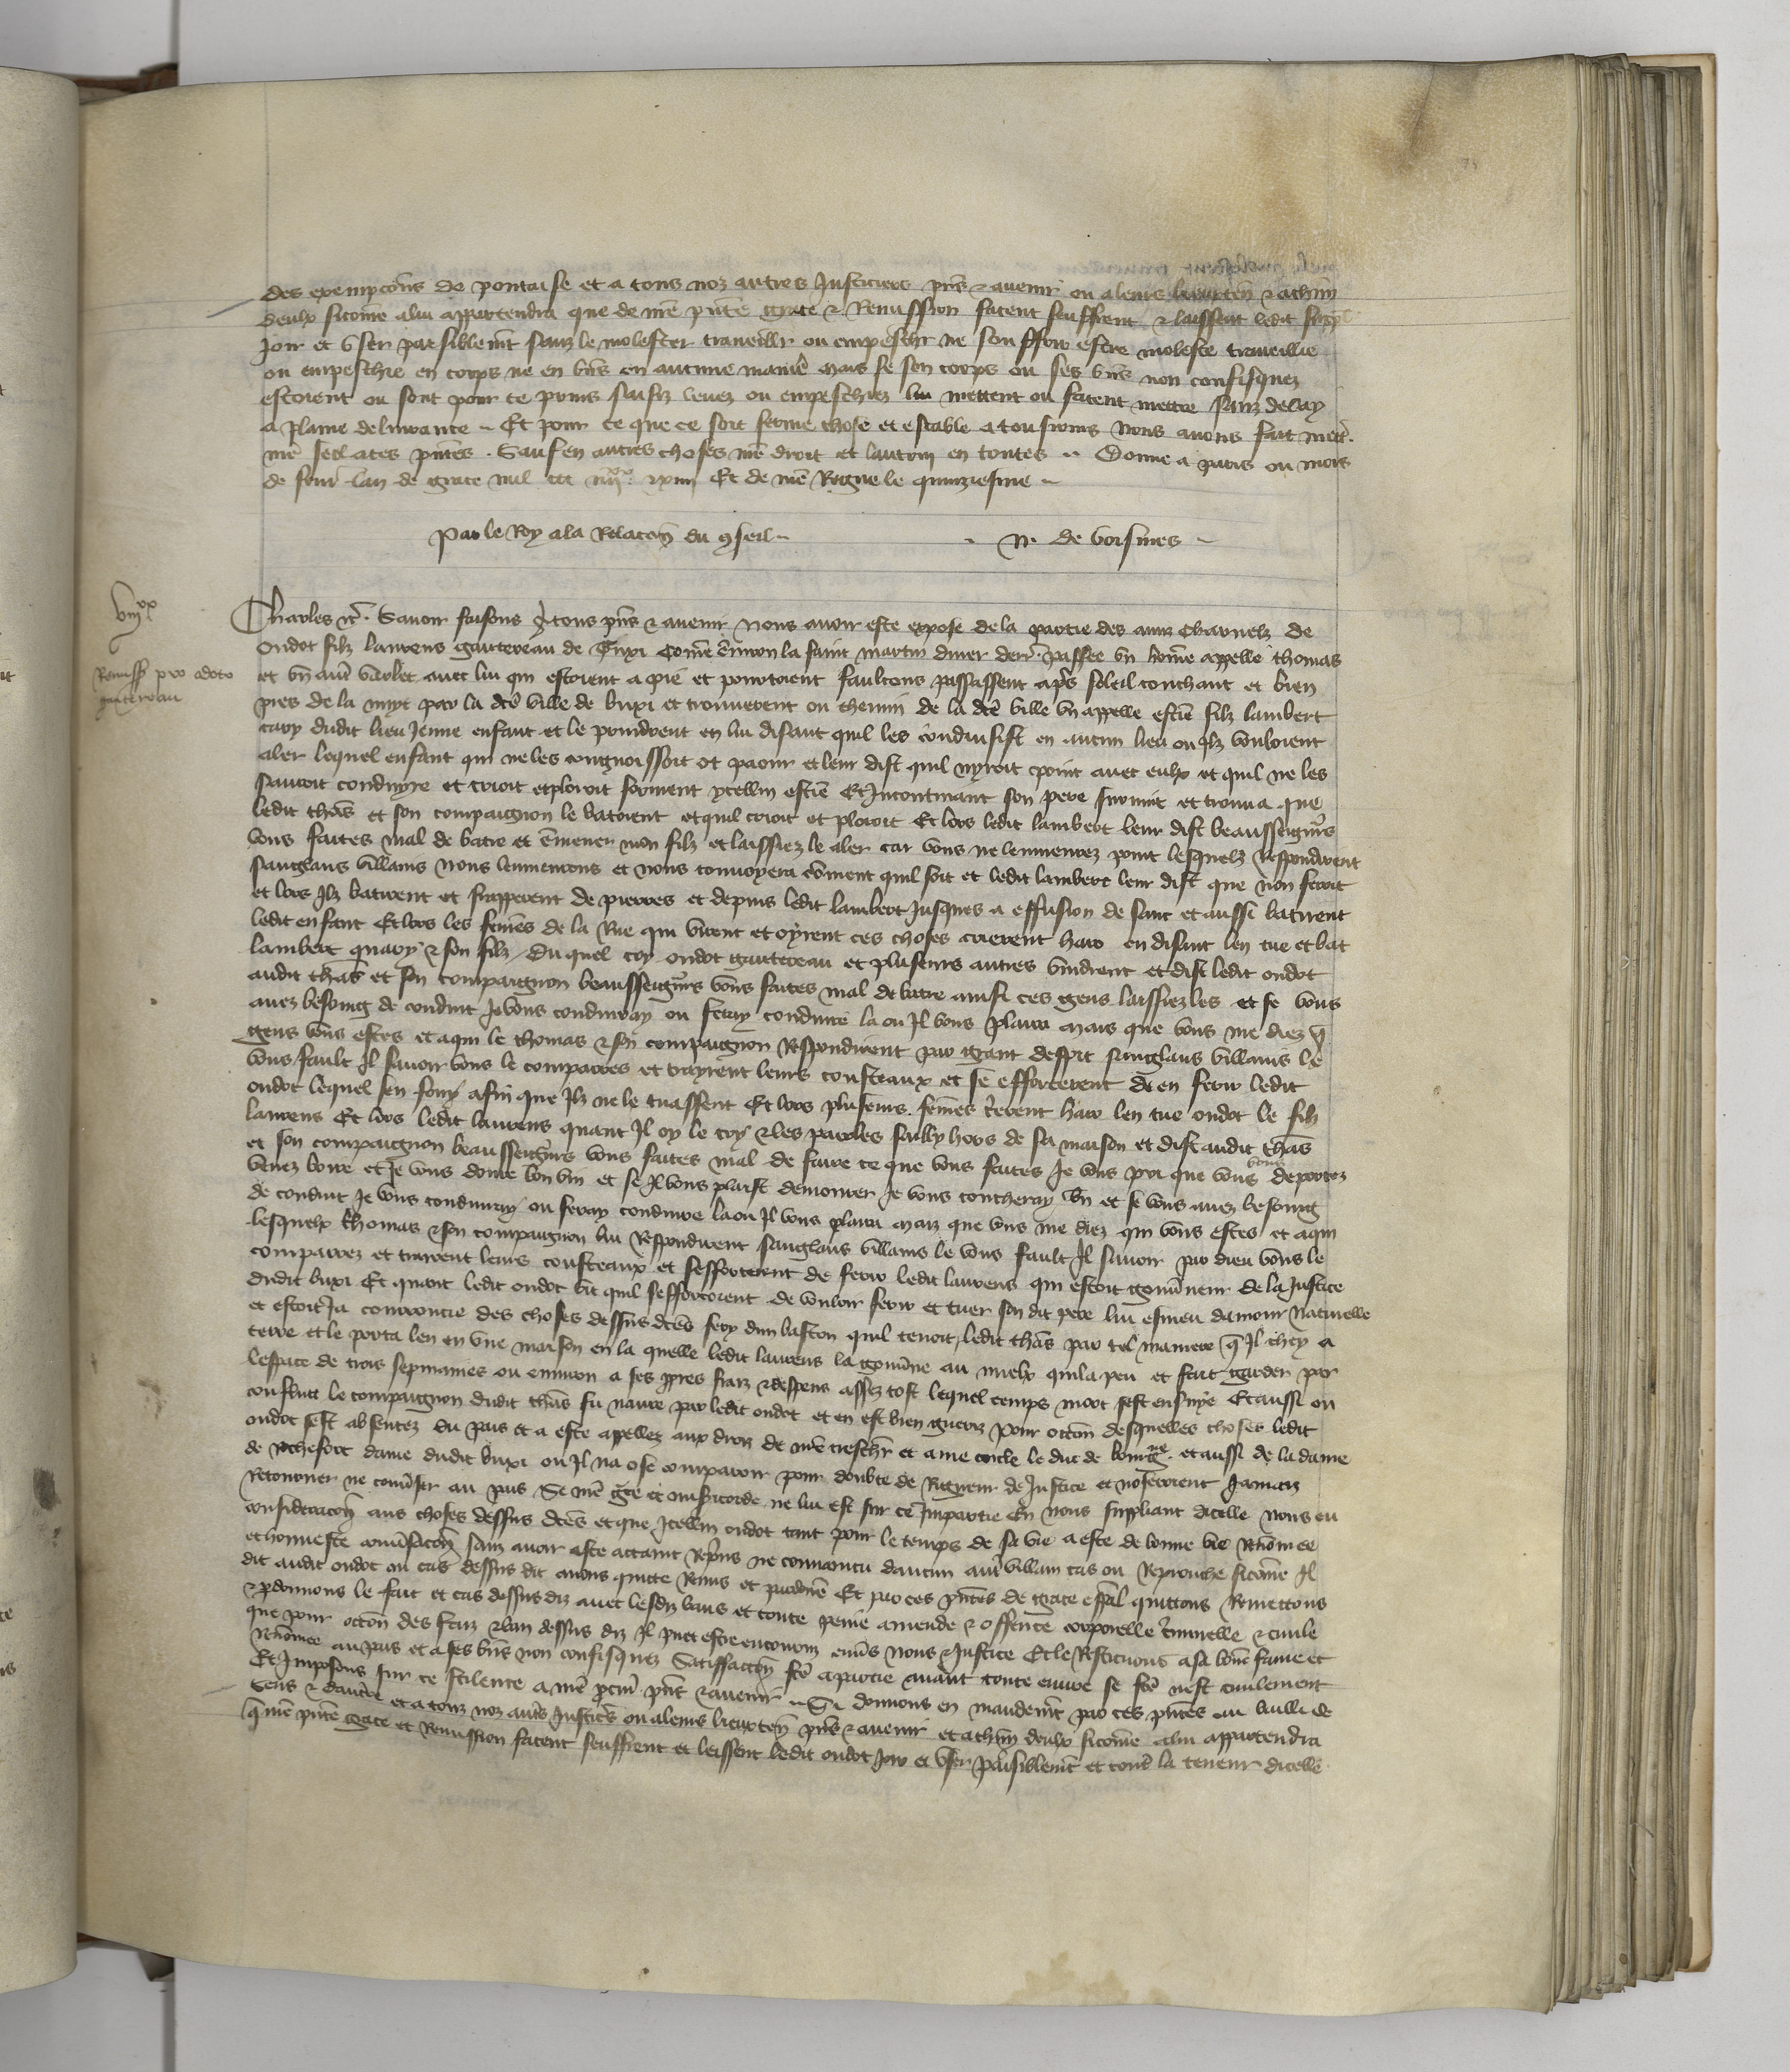 des exempcōns de pontaise et a tous noz autres Justiciers pns̄ & avenir ou a leurs lieuxten̄ & a chūn
deulx sicōme a lui appartendra que de nrē pn̄te grace & Remission facent seuffrent & laissent ledit suppl
Joir et User paisiblemt̄ sanz le molester travaillr̄ ou empeschr̄ ne souffrir estre moleste travaillie
ou empeschie en corps ne en biēs en aucune maniē mais se son corps ou ses biēs non confisquez
estoient ou sont pour ce prins saisiz levez ou empeschiez lui mettent ou facent mettre sanz delay
a plaine delivrance Et pour ce que ce soit ferme chose et estable a tousiours Nous avons fait mettr̄
nrē seel a ces pn̄tes . Sauf en autres choses nrē droit et lautrui en toutes Donne a paris ou mois
de fevr̄ lan de grace mil ccc iiijxx xiiij Et de nrē Regne le quinziesme
Par le Roy a la Relacōn du 9seil
N. de voisines
viijxx
Remissio pro odoto
gautereau
Charles &c̄ . Savoir faisons a tous pns̄ & avenir Nous avoir este expose de la partie des amis charnelz de
Ondot filz laurens gautereau de Buxi Cōme ēnviron la saint martin diver derr̄ . passee un hōme appelle thomas
et un autr̄ varlet avec lui qui estoient a pie et portoient faulcons passassent apr̄s soleil couchant et bien
pres de la nuyt par la dicē ville de buxi et trouverent ou chemin de la dcē ville un appelle estiē filz lambert
cary dudit lieu Jeune enfant et le prindrent en lui disant quil les cōnduisist en aucun lieu ou Ilz vouloient
aler lequel enfant qui ne les congnoissoit ot paour et leur dist quil nyroit point avec eulx et quil ne les
sauroit conduyre et crioit et ploroit forment ycellui estiē Et Incontinant son pere survint et trouva que
ledit thās et son compaignon le batoient et quil crioit et ploroit Et lors ledit lambert leur dist beausseignrs̄
vous faites mal de batre et ēmener mon filz et laissiez le aler car vous ne lenmenrez point lesquelz Respondirent
sanglans villains nous lenmenrons et nous convoyera cōment quil soit et ledit lambert leur dist que non feroit
et lors Ilz batirent et frapperent de pierres et depuis ledit lambert Jusques a effusion de sanc et aussi batirent
ledit enfant Et lors les femēs de la Rue qui virent et oyrent ces choses crierent haro en disant len tue et bat
lambert quary & son filz / Du quel cry ondot gautereau et pluseurs autres vindrent et dist ledit ondot
audit thās et son compaignon beausseignrs̄ vous faites mal de batre ainsi ces gens laissiez les et se vous
avez besoing de conduit Je vous conduiray ou feray conduire la ou Il vous plaira mais que vous me diez q̄
gens vous estes et a qui le thomas & son compaignon Respondirent par grant despit sanglans villains le
vous fault Il savoir vous le comparres et trayrent leurs cousteaux et se efforcerent de en ferir ledit
ondot lequel sen fouy afin que Ilz ne le tuassent Et lors pluseurs femēs crierent haro len tue ondot le filz
laurens Et lors ledit laurens quant Il oy le cry & les paroles sailly hors de sa maison et dist audit thās
et son compaignon beausseignrs̄ vous faites mal de faire ce que vous faites Je vous pri que vous vous deportez
venez boire et Je vous donrē bon vin et se Il vous plaist demourer Je vous coucheray bn̄ et se vous avez besoing
de conduit Je vous conduiray ou feray conduire la ou Il vous plaira maiz que vous me diez qui vous estes et a qui
lesquelx thomas & son compaignon lui Respondirent sanglans villains le vous fault Il savoir par dieu vous le
comparrez et trairent leurs cousteaux et sefforcerent de ferir ledit laurens qui estoit gouvn̄eur de la Justice
dudit buxi Et quant ledit ondot vit quil sefforcoient de vouloir ferir et tuer son dit pere lui esmeu damour naturelle
et estoit Ja courroucie des choses dessus dcēs fery dun baston quil tenoit ledit thās par tel maniere q̄ Il chey a
terre et le porta len en une maison en la quelle ledit laurens la gouvn̄e au mielx quil a peu et fait garder par
lespace de trois sepmaines ou environ a ses ppres fraiz & despens assez tost lequel temps mort sest ensuye Et aussi ou
conflict le compaignon dudit thās fu navre par ledit ondot et en est bien gueriz Pour occōn desquelles choses ledit
ondot sest absentez du pais et a este appellez aux droiz de nrē treschr̄ et ame oncle le duc de bourgne . et aussi de la dame
de Rochefort dame dudit buxi ou Il na ose comparoir pour doubte de Rigueur de Justice et noseroient Jamaiz
Retourner ne convs̄er au pais Se nrē grē et misericorde ne lui est sur ce Impartie En nous suppliant dicelle Nous eu
consideracōn aus choses dessus dcēs et que Icellui ondot tout pour le temps de sa vie a este de bonne vie Rnōmee
et honneste convs̄acōn sanz avoir este actaint Repr̄ns ne convaincu daucun autr̄ villain cas ou Reprouche sicōme Il
dit audit ondot ou cas dessus dit avons quitte Remis et pardonē Et par ces pn̄tes de grace esp̄al quittons Remettons
& p̄donnons le fait et cas dessus diz avec lesdiz bans et toute peine amende & offence corporelle cr̄iminelle & civile
que pour occōn des faiz & ban dessus diz Il puet estre encouru envs̄ nous & Justice Et le Restituons a sa bonē fame et
Rnōmee au pais et a ses biēs non confisquez Satisfaccōn fcē a partie avant toute euvre se fcē nest civilement
Et Imposons sur ce scilence a nrē p̄cur̄ pn̄t & avenir Si donnons en mandemt̄ par ces pn̄tes au bailli de
Sens & daucēre et a touz noz autr̄s Justicrs̄ ou a leurs lieuxten̄ pns̄ & avenir et a chūn deulx sicōme a lui appartendra
q̄ nrē pn̄te grace et Remission facent seuffrent et laissent ledit ondot Joir et User paisiblemt̄ et contr̄ la teneur dicelle